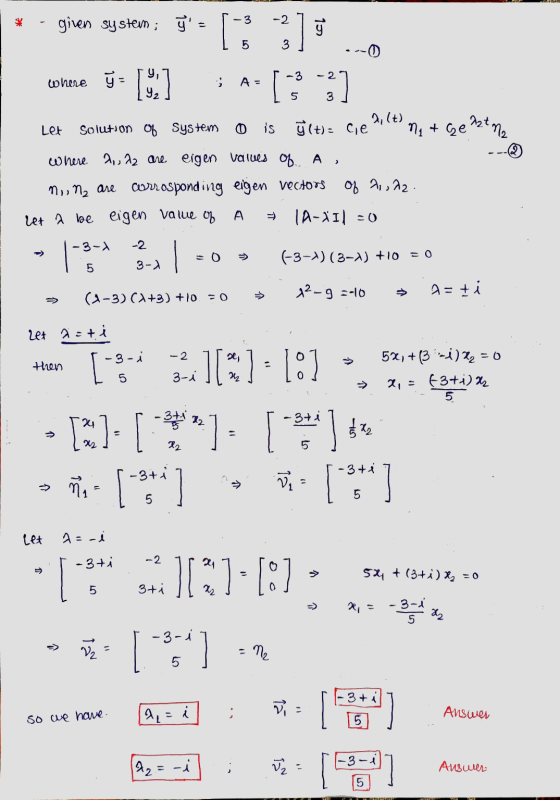 * - given system; y⃗' = [ -3 -2 ; 5 3 ] y⃗ ---①
where y⃗ = [ y₁ ; y₂ ] ; A = [ -3 -2 ; 5 3 ]
Let solution of system ① is y⃗(t) = C₁e^λ₁(t) η₁ + C₂e^λ₂t η₂ ---②
where λ₁, λ₂ are eigen values of A ,
η₁, η₂ are corrosponding eigen vectors of λ₁, λ₂.
Let λ be eigen value of A ⇒ |A-λI| = 0
⇒ | -3-λ -2 ; 5 3-λ | = 0 ⇒ (-3-λ)(3-λ) + 10 = 0
⇒ (λ-3)(λ+3) + 10 = 0 ⇒ λ² - 9 = -10 ⇒ λ = ± i
Let λ = + i
then [ -3-i -2 ; 5 3-i ] [ x₁ ; x₂ ] = [ 0 ; 0 ] ⇒ 5x₁ + (3-i)x₂ = 0
⇒ x₁ = (-3+i)x₂ / 5
⇒ [ x₁ ; x₂ ] = [ -3+i/5 x₂ ; x₂ ] = [ -3+i ; 5 ] 1/5 x₂
⇒ η⃗₁ = [ -3+i ; 5 ] ⇒ v⃗₁ = [ -3+i ; 5 ]
Let λ = -i
⇒ [ -3+i -2 ; 5 3+i ] [ x₁ ; x₂ ] = [ 0 ; 0 ] ⇒ 5x₁ + (3+i)x₂ = 0
⇒ x₁ = -3-i/5 x₂
⇒ v⃗₂ = [ -3-i ; 5 ] = η₂
so we have. λ₁ = i ; v⃗₁ = [ -3+i ; 5 ] Answer
λ₂ = -i ; v⃗₂ = [ -3-i ; 5 ] Answer